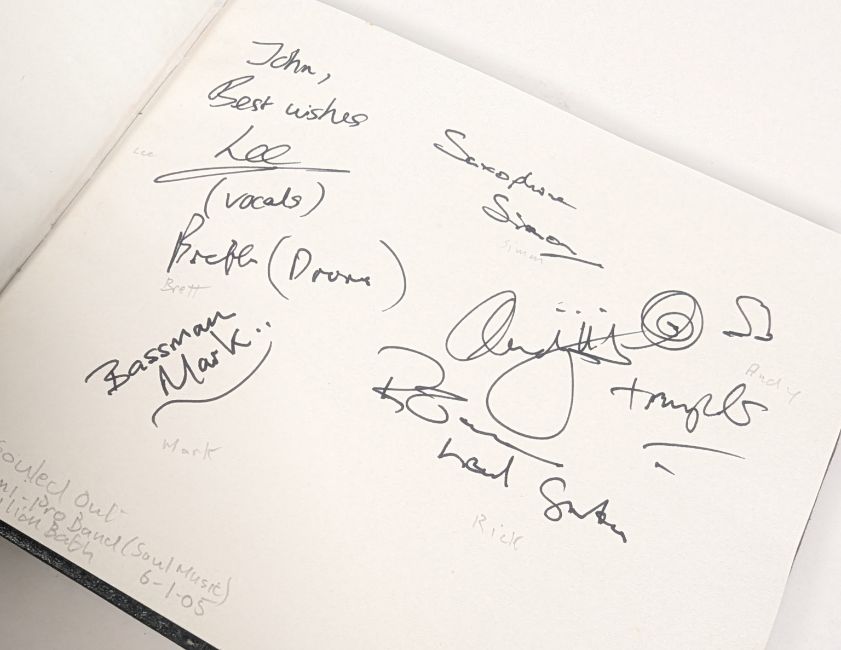 John,
Best wishes
Lee
Lee
(vocals)
Brett (Drums)
Brett
Bassman
Mark..
Mark
Saxophone
Simon
Simon
Andy
Andy
trumpets
Lead Guitar
Rick
Souled Out
Pro Band (Soul Music)
Bath
6-1-05